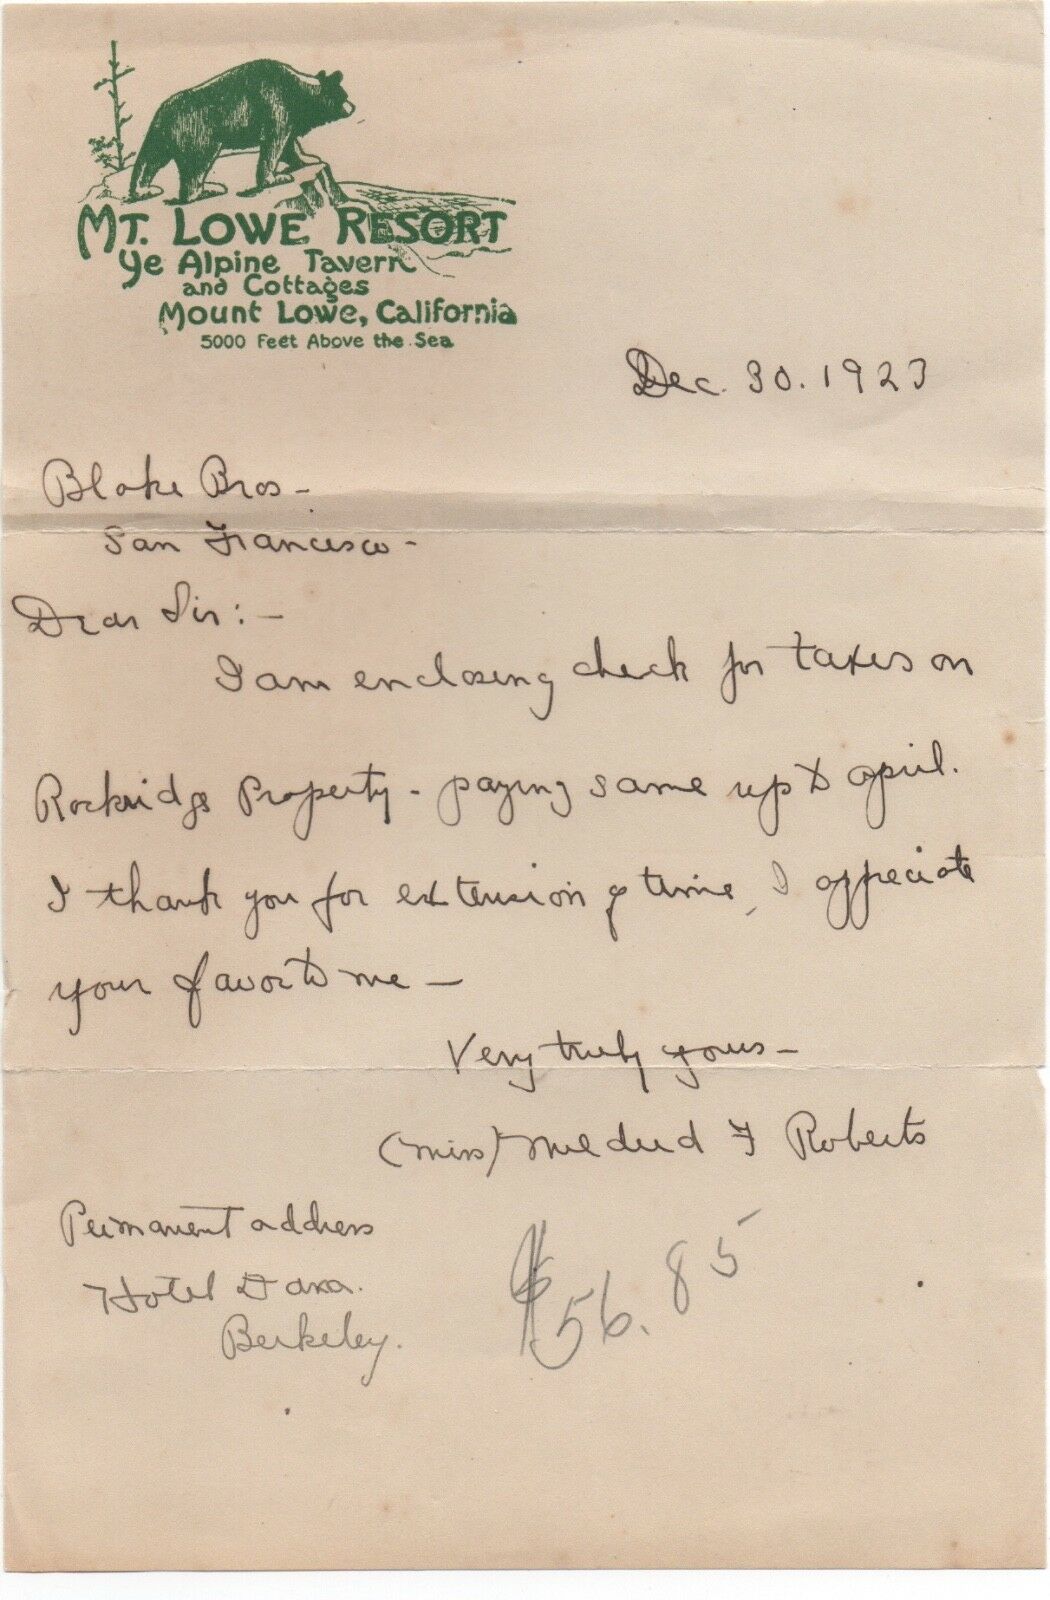 Mt. Lowe Resort
Ye Alpine Tavern
and Cottages
Mount Lowe, California
5000 Feet Above the Sea
Dec. 30. 1923
Blake Bros -
San Francisco -
Dear Sir: -
I am enclosing check for taxes on
Rockridge Property - paying same up to april.
I thank you for extension of time, I appreciate
your favor to me -
Very truly yours -
(Miss) Mildred F Roberts
Permanent address
Hotel Dana.
Berkeley.
$56.85